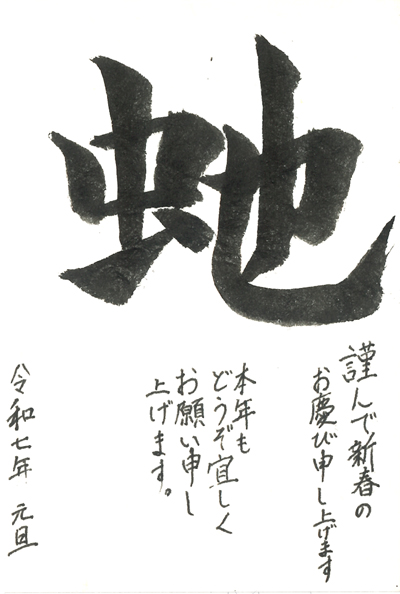 虵
謹んで新春の
お慶び申し上げます
本年も
どうぞ宜しく
お願い申し
上げます。
令和七年 元旦